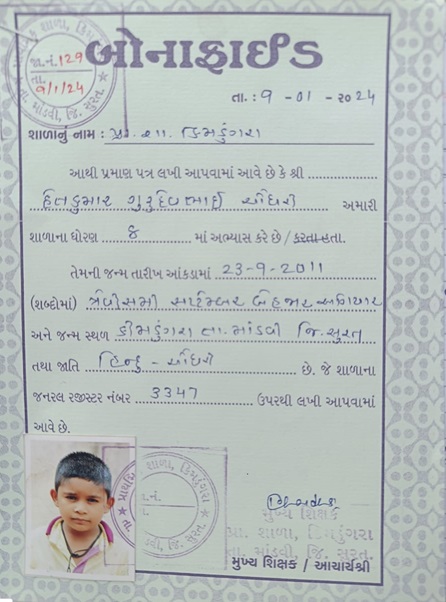 બોનાફાઈડ
જા.નં. 129
તા. 9/1/24
તા. માંડવી, જિ. સુરત.
તા. : ૭ - ૦૧ - ૨૦૨૪
શાળાનું નામ : પ્રા. શા. કિમડુંગરા
આથી પ્રમાણ પત્ર લખી આપવામાં આવે છે કે શ્રી
હેતકુમાર ગુરુદેવભાઈ ચૌધરી અમારી
શાળાના ધોરણ ૪ માં અભ્યાસ કરે છે / કરતા હતા.
તેમની જન્મ તારીખ આંકડામાં 23-9-2011
(શબ્દોમાં) ત્રેવીસમી સપ્ટેમ્બર બેહજાર અગિયાર
અને જન્મ સ્થળ કીમડુંગરા તા. માંડવી જિ. સુરત
તથા જાતિ હિન્દુ - ચૌધરી છે. જે શાળાના
જનરલ રજીસ્ટર નંબર 3347 ઉપરથી લખી આપવામાં
આવે છે.
પ્રાથમિક શાળા, કિમડુંગરા
જા.નં.
તા. માંડવી, જિ. સુરત.
મુખ્ય શિક્ષક
પ્રા. શાળા, કિમડુંગરા
તા. માંડવી, જિ. સુરત.
મુખ્ય શિક્ષક / આચાર્યશ્રી